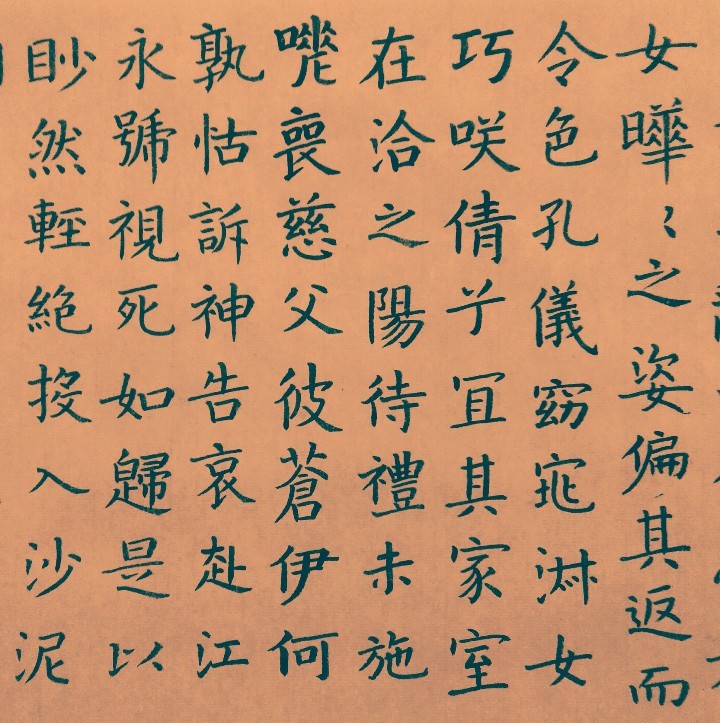 女曄〻之姿偏其返而
令色孔儀窈窕淑女
巧咲倩兮冝其家室
在洽之陽待禮未施
嗟喪慈父彼蒼伊何
孰怙訴神告哀赴江
永號視死如歸是以
眇然輕絕投入沙泥